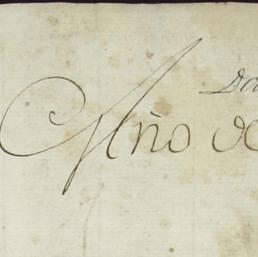 Año de